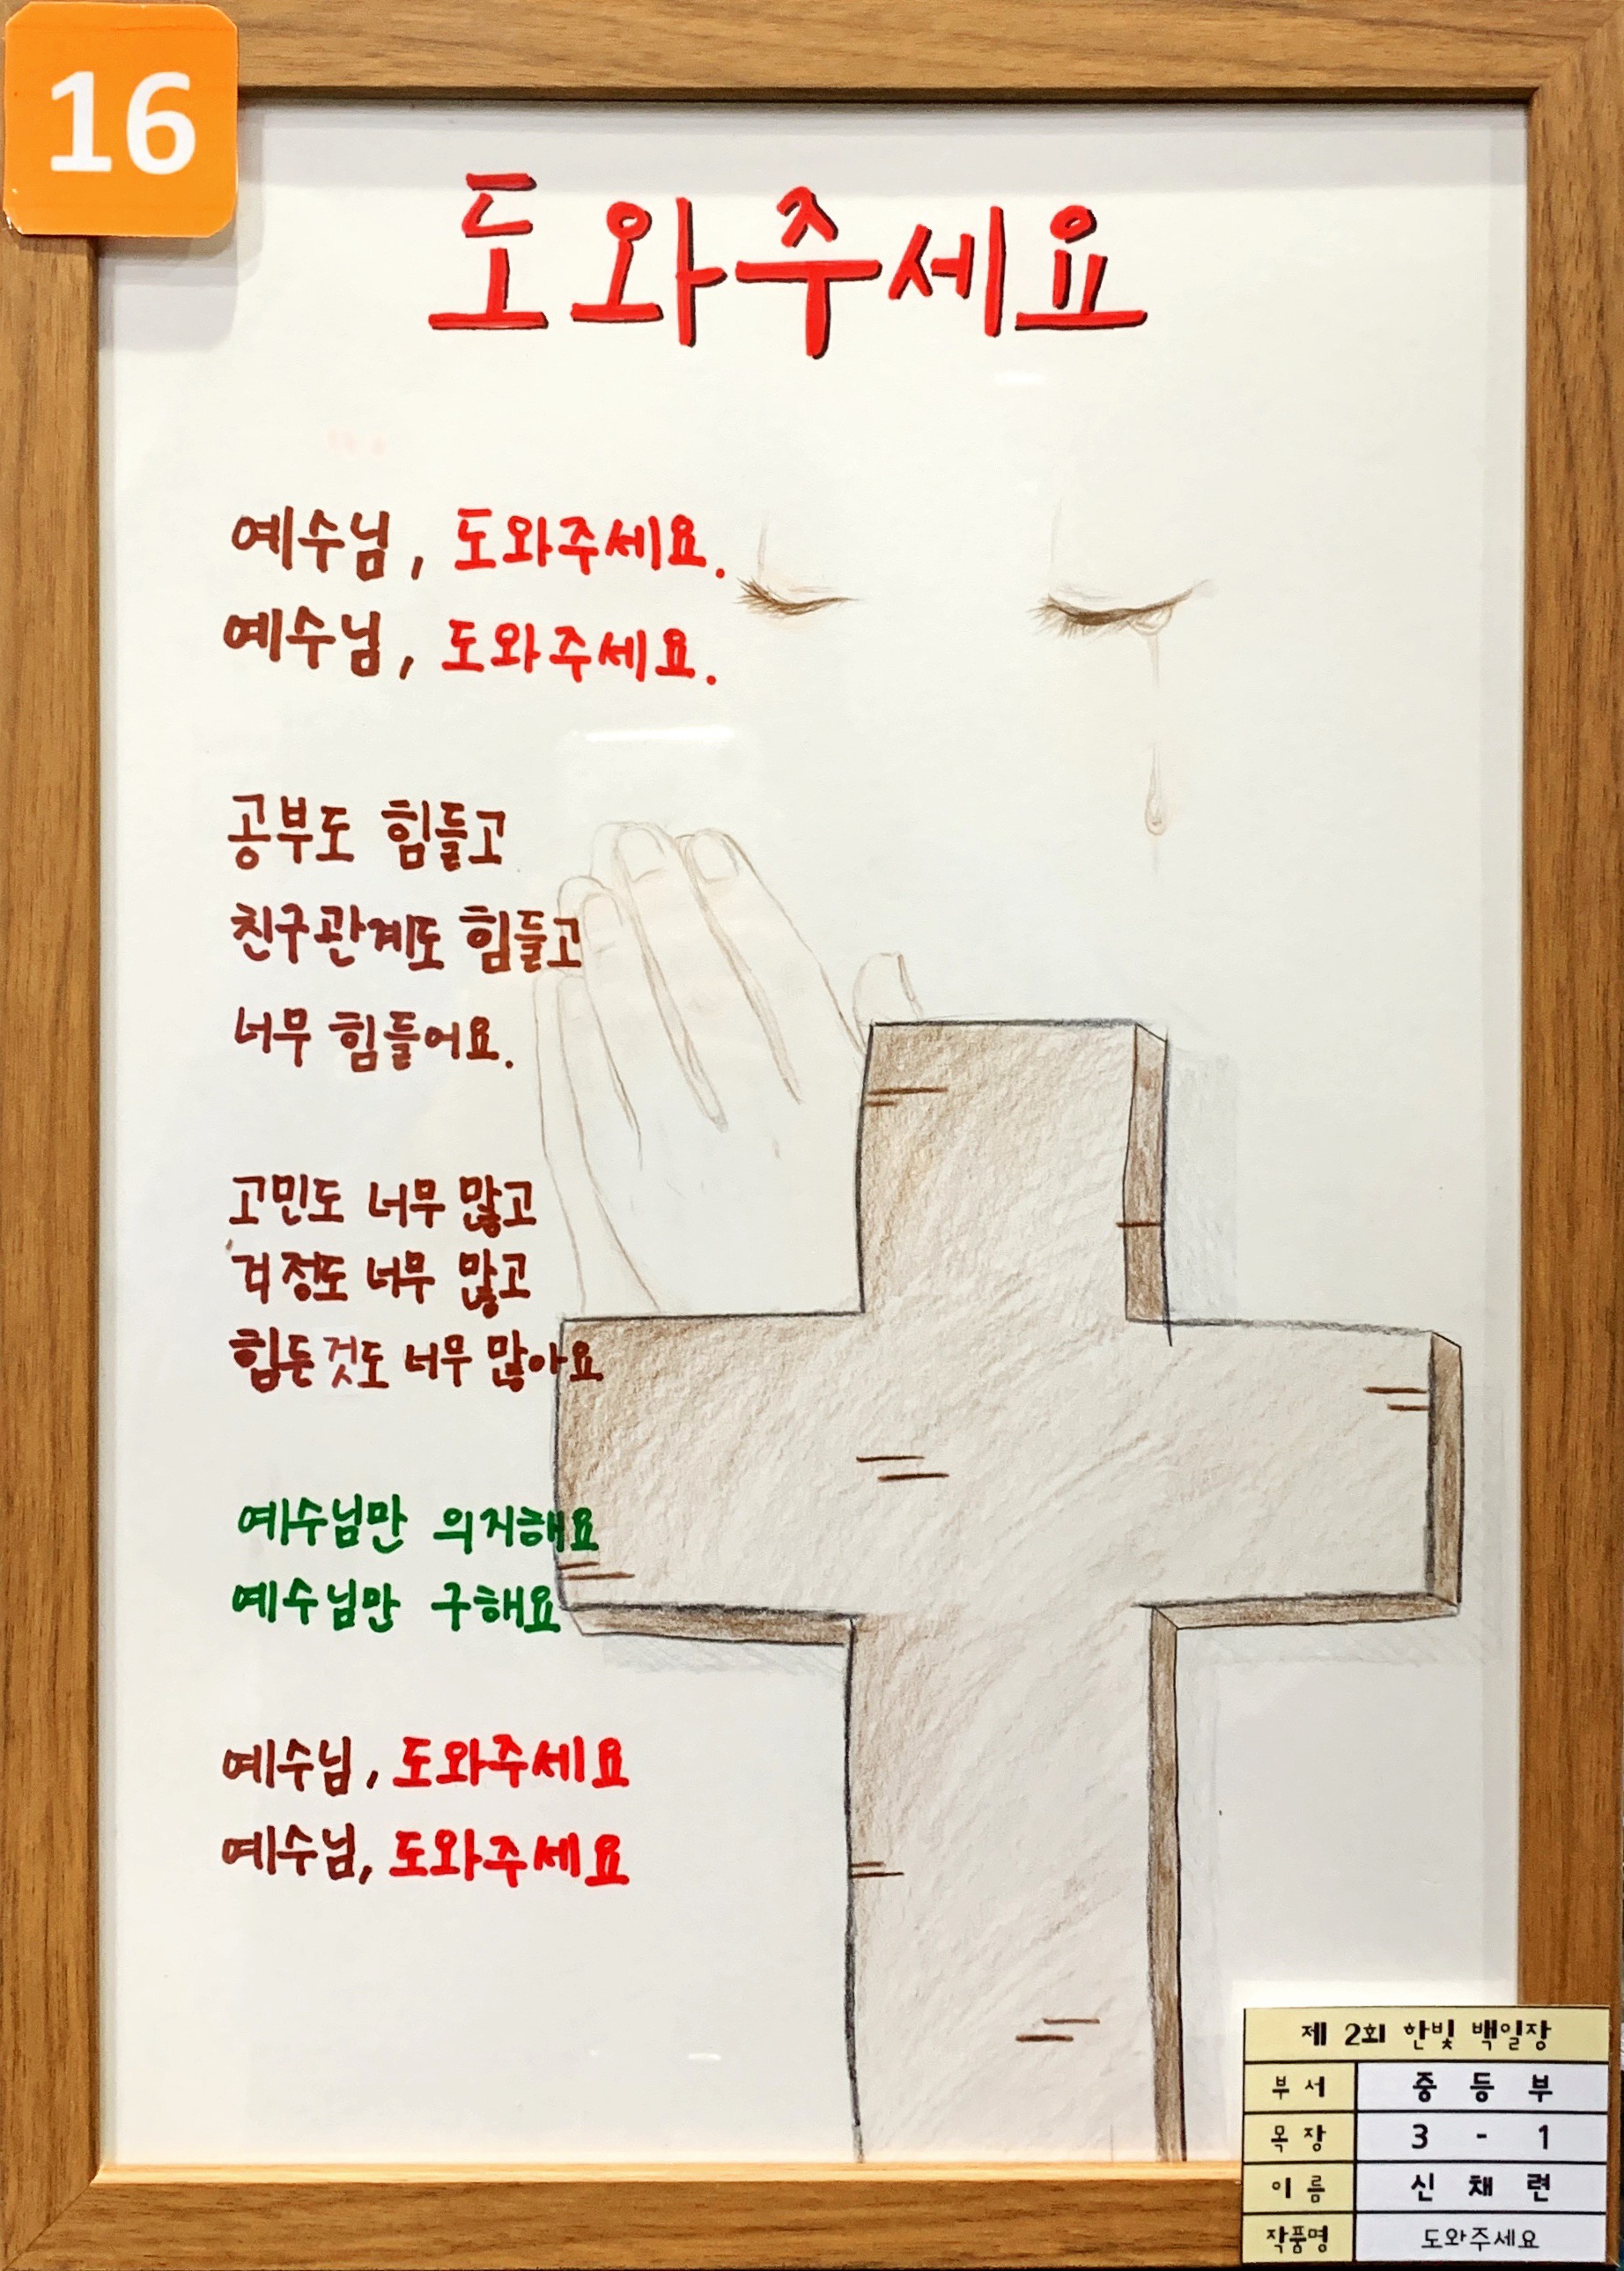 16
도와주세요
예수님, 도와주세요.
예수님, 도와주세요.
공부도 힘들고
친구관계도 힘들고
너무 힘들어요.
고민도 너무 많고
걱정도 너무 많고
힘든것도 너무 많아요
예수님만 의지해요
예수님만 구해요
예수님, 도와주세요
예수님, 도와주세요
제 2회 한빛 백일장
부서 중등부
목장 3 - 1
이름 신채련
작품명 도와주세요